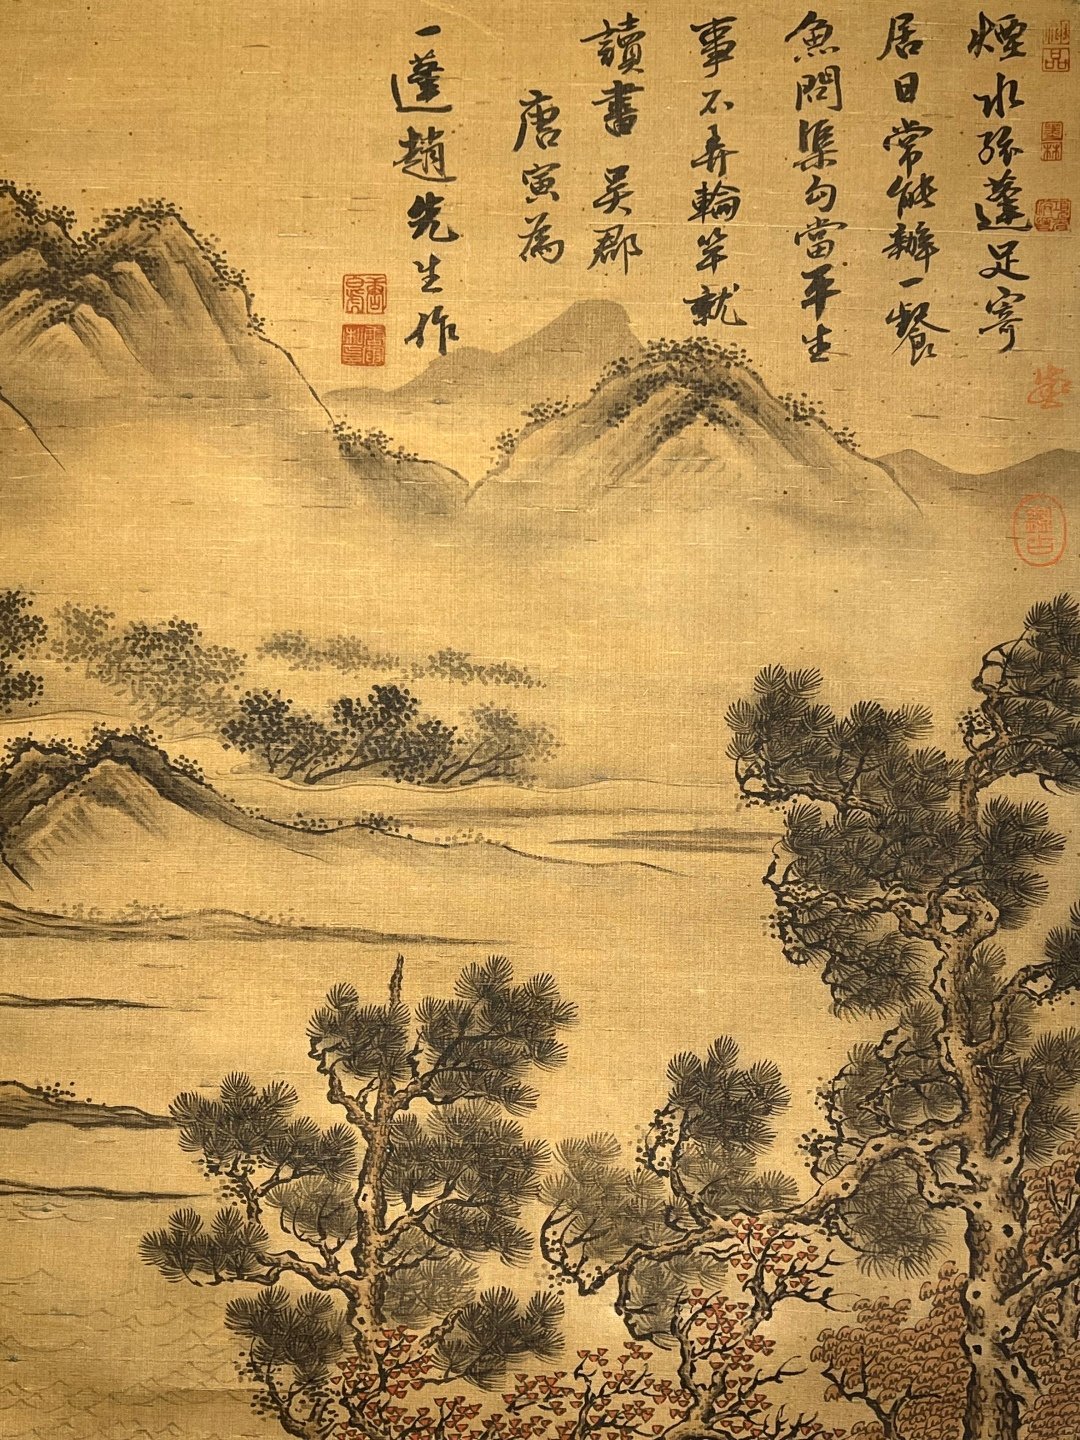 煙水孤蓬足寄
居日常能辦一餐
魚問渠勾當平生
事不弄輪竿就
讀書 吳郡
唐寅為
一蓬趙先生作